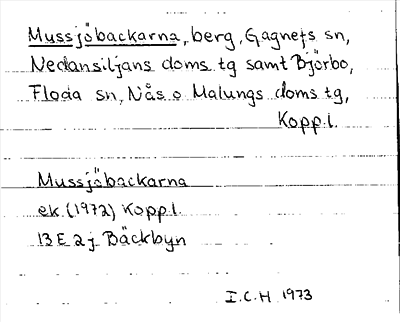 Mussjöbackarna, berg, Gagnefs sn,
Nedansiljans doms tg samt Björbo,
Floda sn, Nås o Malungs doms tg,
Kopp.l.
Mussjöbackarna
ek. (1972) Kopp l.
13 E 2 j Bäckbyn
I.C.H 1973